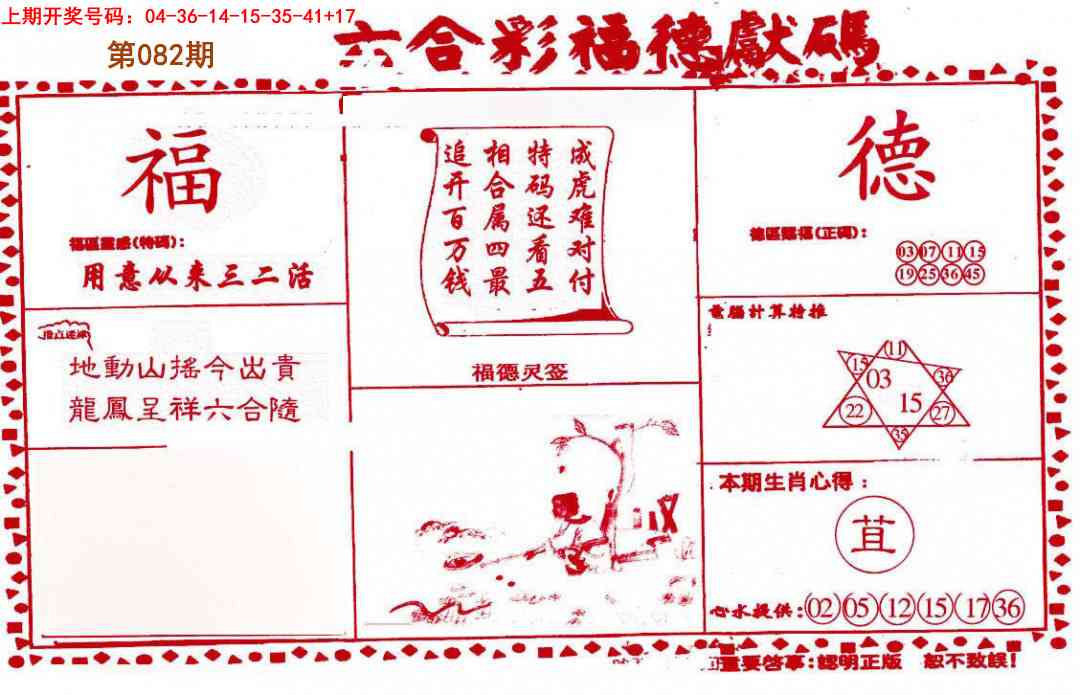 上期开奖号码：04-36-14-15-35-41+17
第082期
六合彩福德獻碼
福
福區靈感(特碼)：
用意从来三二活
地動山搖今出貴
龍鳳呈祥六合隨
成虎难对付
特码还看五
相合属四最
追开百万钱
福德灵签
德
德區賜福(正碼)：
03 07 11 15
19 25 36 45
電腦計算特推
11
15 36
03
22 15 27
35
本期生肖心得：
苴
心水提供：02 05 12 15 17 36
重要啓事：認明正版 恕不致誤！